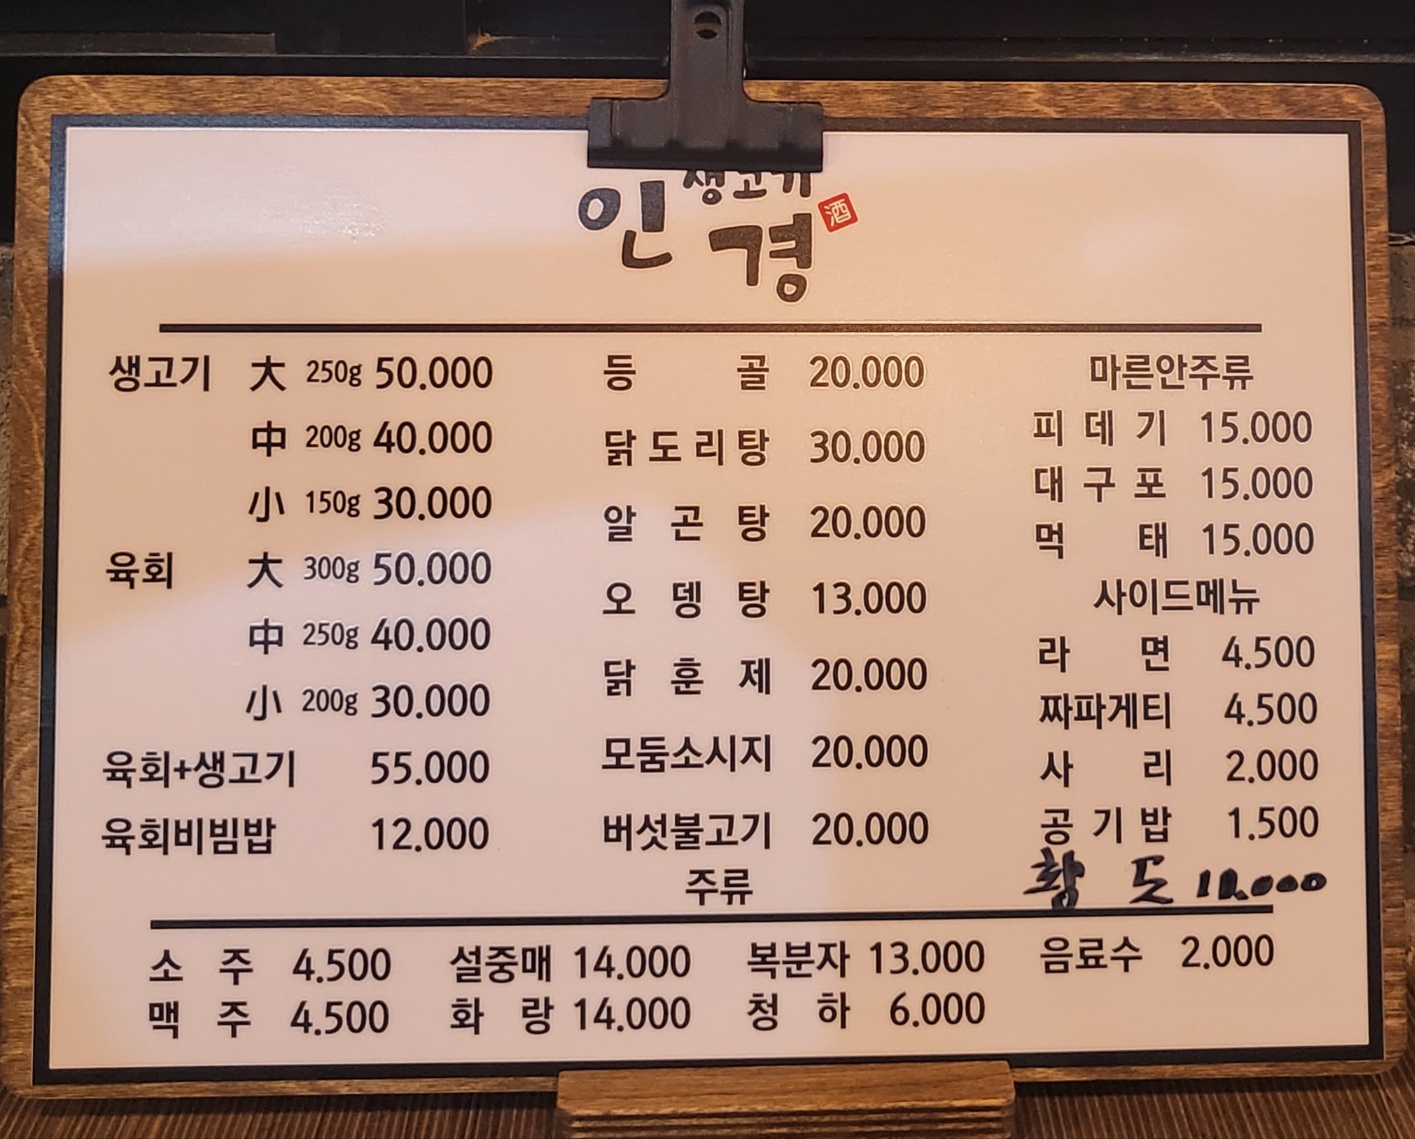 생고기
인경
酒
생고기 大 250g 50.000
中 200g 40.000
小 150g 30.000
육회 大 300g 50.000
中 250g 40.000
小 200g 30.000
육회+생고기 55.000
육회비빔밥 12.000
등골 20.000
닭도리탕 30.000
알곤탕 20.000
오뎅탕 13.000
닭훈제 20.000
모둠소시지 20.000
버섯불고기 20.000
마른안주류
피데기 15.000
대구포 15.000
먹태 15.000
사이드메뉴
라면 4.500
짜파게티 4.500
사리 2.000
공기밥 1.500
황도
주류
소주 4.500 설중매 14.000 복분자 13.000 음료수 2.000
맥주 4.500 화랑 14.000 청하 6.000